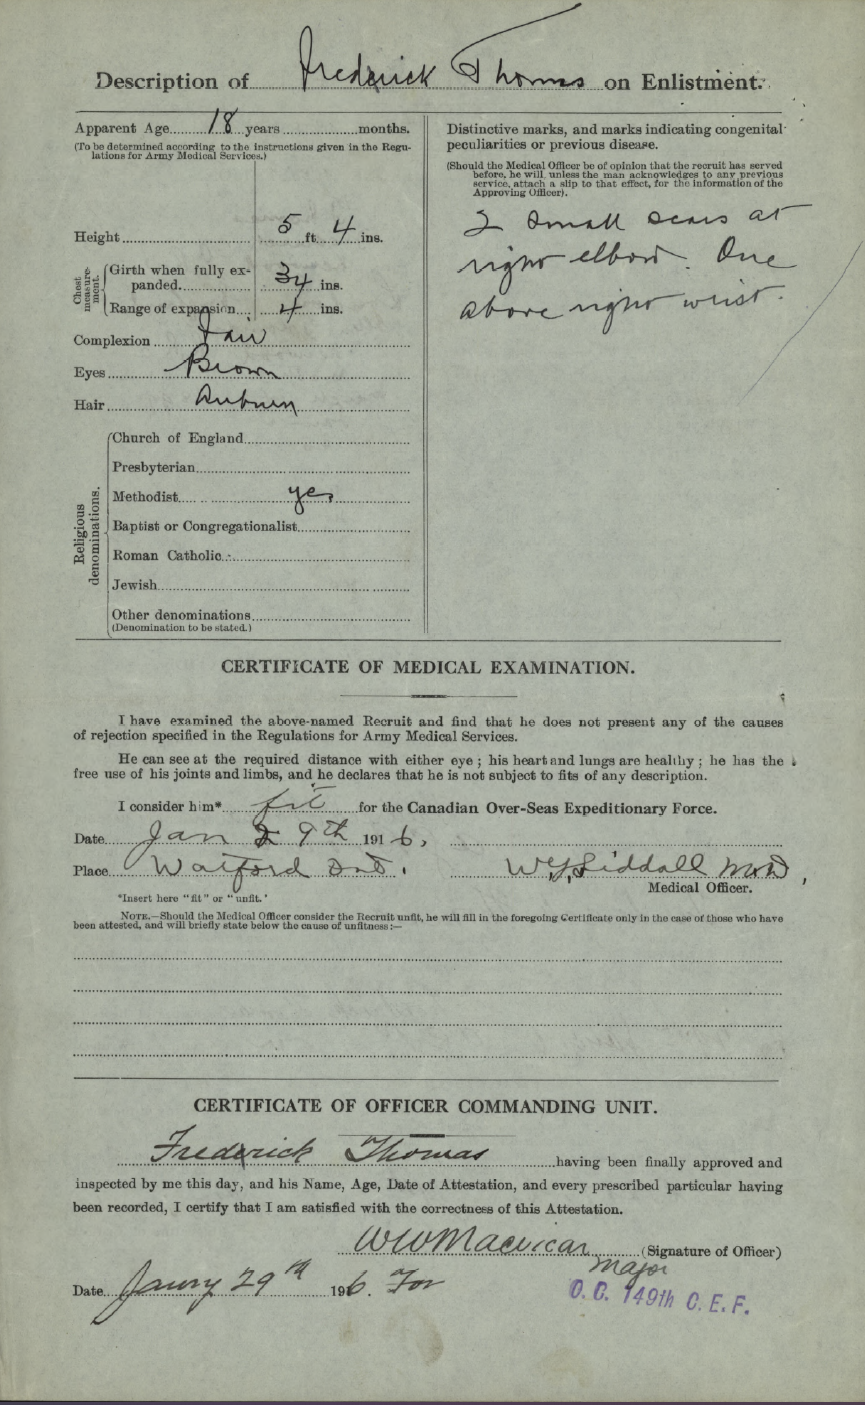 Description of Frederick Thomas on Enlistment.
Apparent Age 18 years months.
(To be determined according to the instructions given in the Regu-
lations for Army Medical Services.)
Height 5 ft. 4 ins.
Chest measure-ment.
Girth when fully ex-
panded 34 ins.
Range of expansion 4 ins.
Complexion Fair
Eyes Brown
Hair Auburn
Religious denominations.
Church of England
Presbyterian
Methodist yes
Baptist or Congregationalist
Roman Catholic
Jewish
Other denominations
(Denomination to be stated.)
Distinctive marks, and marks indicating congenital
peculiarities or previous disease.
(Should the Medical Officer be of opinion that the recruit has served
before, he will, unless the man acknowledges to any previous
service, attach a slip to that effect, for the information of the
Approving Officer).
2 small scars at
right elbow. One
above right wrist.
CERTIFICATE OF MEDICAL EXAMINATION.
I have examined the above-named Recruit and find that he does not present any of the causes
of rejection specified in the Regulations for Army Medical Services.
He can see at the required distance with either eye; his heart and lungs are healthy; he has the
free use of his joints and limbs, and he declares that he is not subject to fits of any description.
I consider him* fit for the Canadian Over-Seas Expeditionary Force.
Date Jan 29th 1916.
Place Watford Ont. W.G. Siddall M.D.
Medical Officer.
*Insert here "fit" or "unfit."
NOTE.—Should the Medical Officer consider the Recruit unfit, he will fill in the foregoing Certificate only in the case of those who have
been attested, and will briefly state below the cause of unfitness:—
CERTIFICATE OF OFFICER COMMANDING UNIT.
Frederick Thomas having been finally approved and
inspected by me this day, and his Name, Age, Date of Attestation, and every prescribed particular having
been recorded, I certify that I am satisfied with the correctness of this Attestation.
WW Macvicar (Signature of Officer)
Major
Date Janry 29th 1916. For O.C. 149th C.E.F.